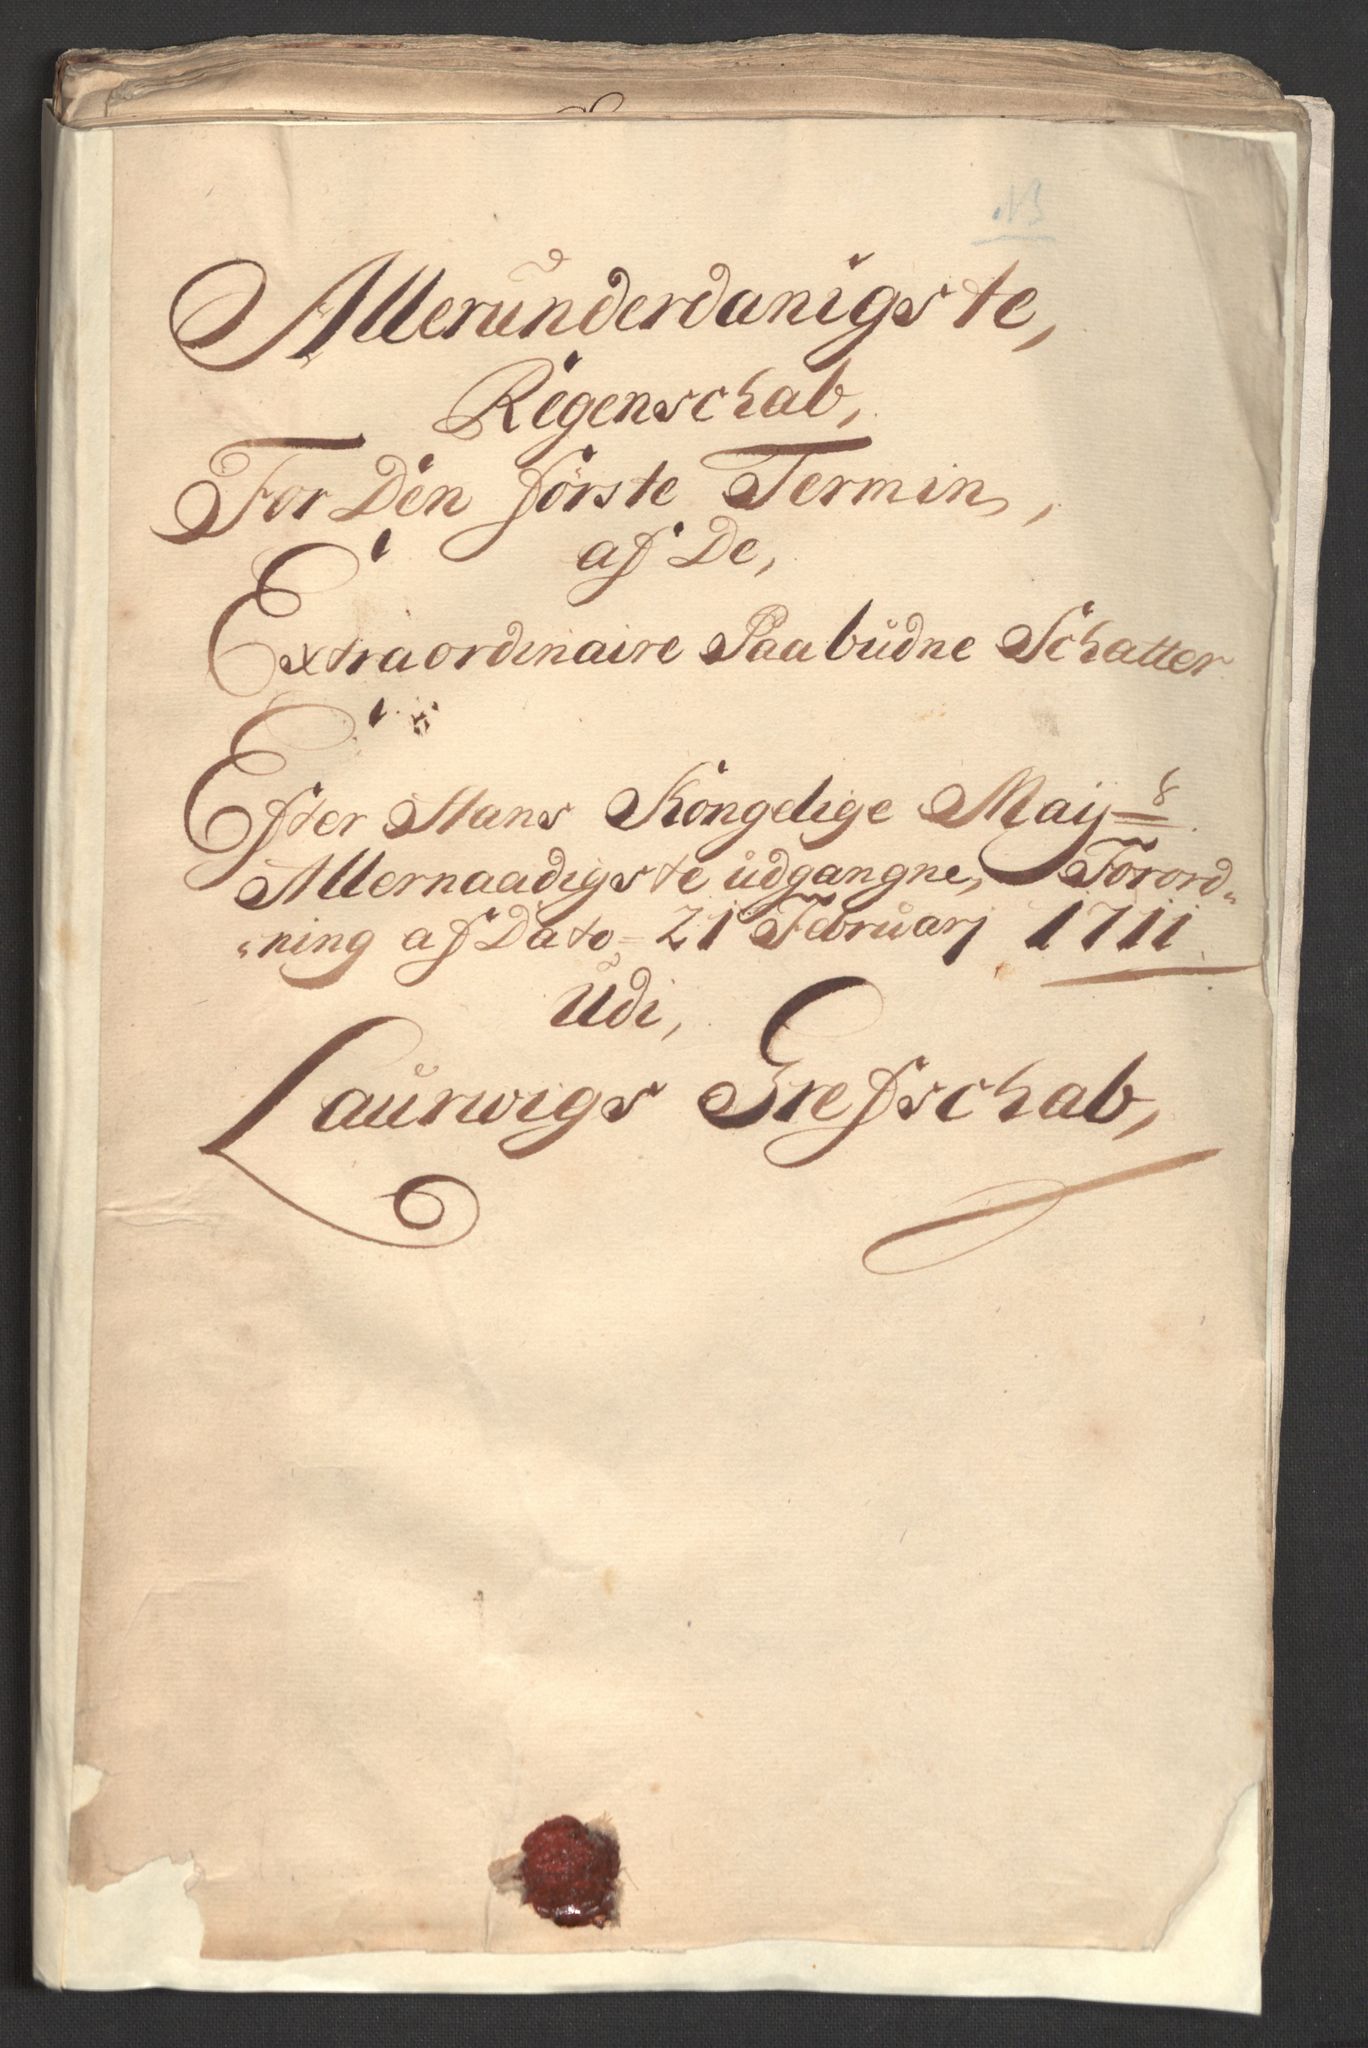 Allerunderdanigste,
Regenschab,
For Den förste Termin,
af De,
Extraordinaire Paabudne Schatter
Efter Hans Kongelige Maij
Allernaadigste udgangne, Forord-
ning af Dato 21 Februarj 1711
Udi,
Laurwigs Grefschab,